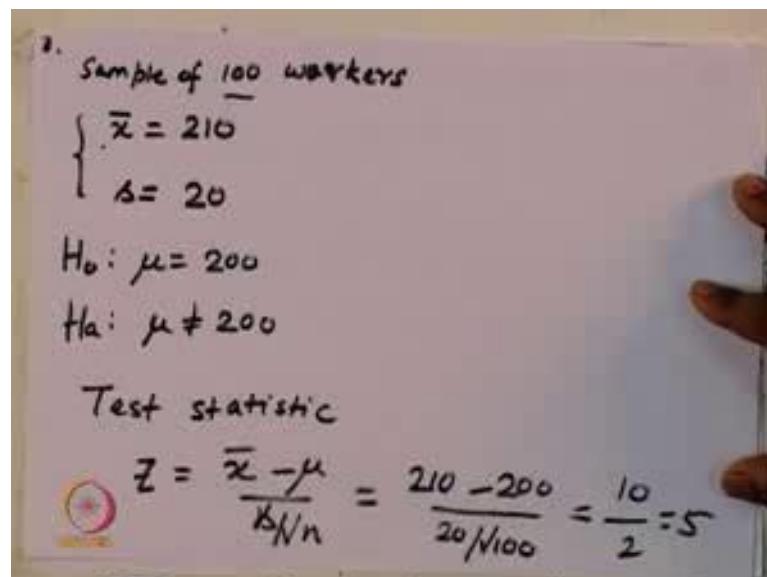 1.
Sample of 100 workers
x̄ = 210
s = 20
H₀: μ = 200
Ha: μ ≠ 200
Test statistic
Z = (x̄ - μ) / (s/√n) = (210 - 200) / (20/√100) = 10/2 = 5